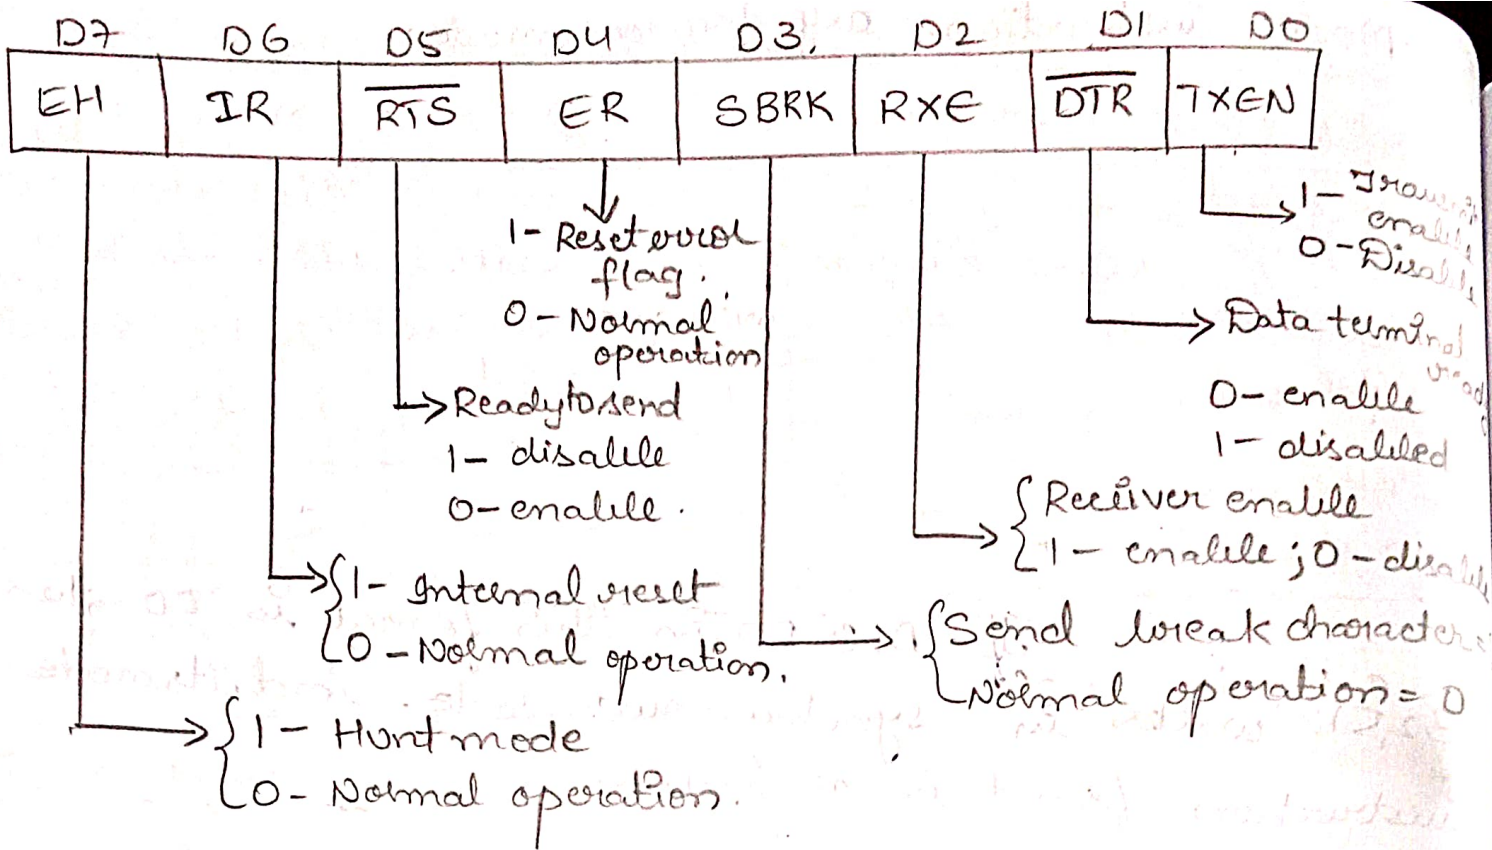 D7 D6 D5 D4 D3. D2 D1 D0
EH IR R̅T̅S̅ ER SBRK RXE D̅T̅R̅ TXEN
1- Transmit
enable
0-Disable
1- Reset error
flag.
0- Normal
operation
Data terminal
ready
0- enable
1- disabled
Ready to send
1- disable
0- enable.
Receiver enable
1- enable; 0-disable
1- Internal reset
0-Normal operation.
Send break character
Normal operation= 0
1- Hunt mode
0- Normal operation.